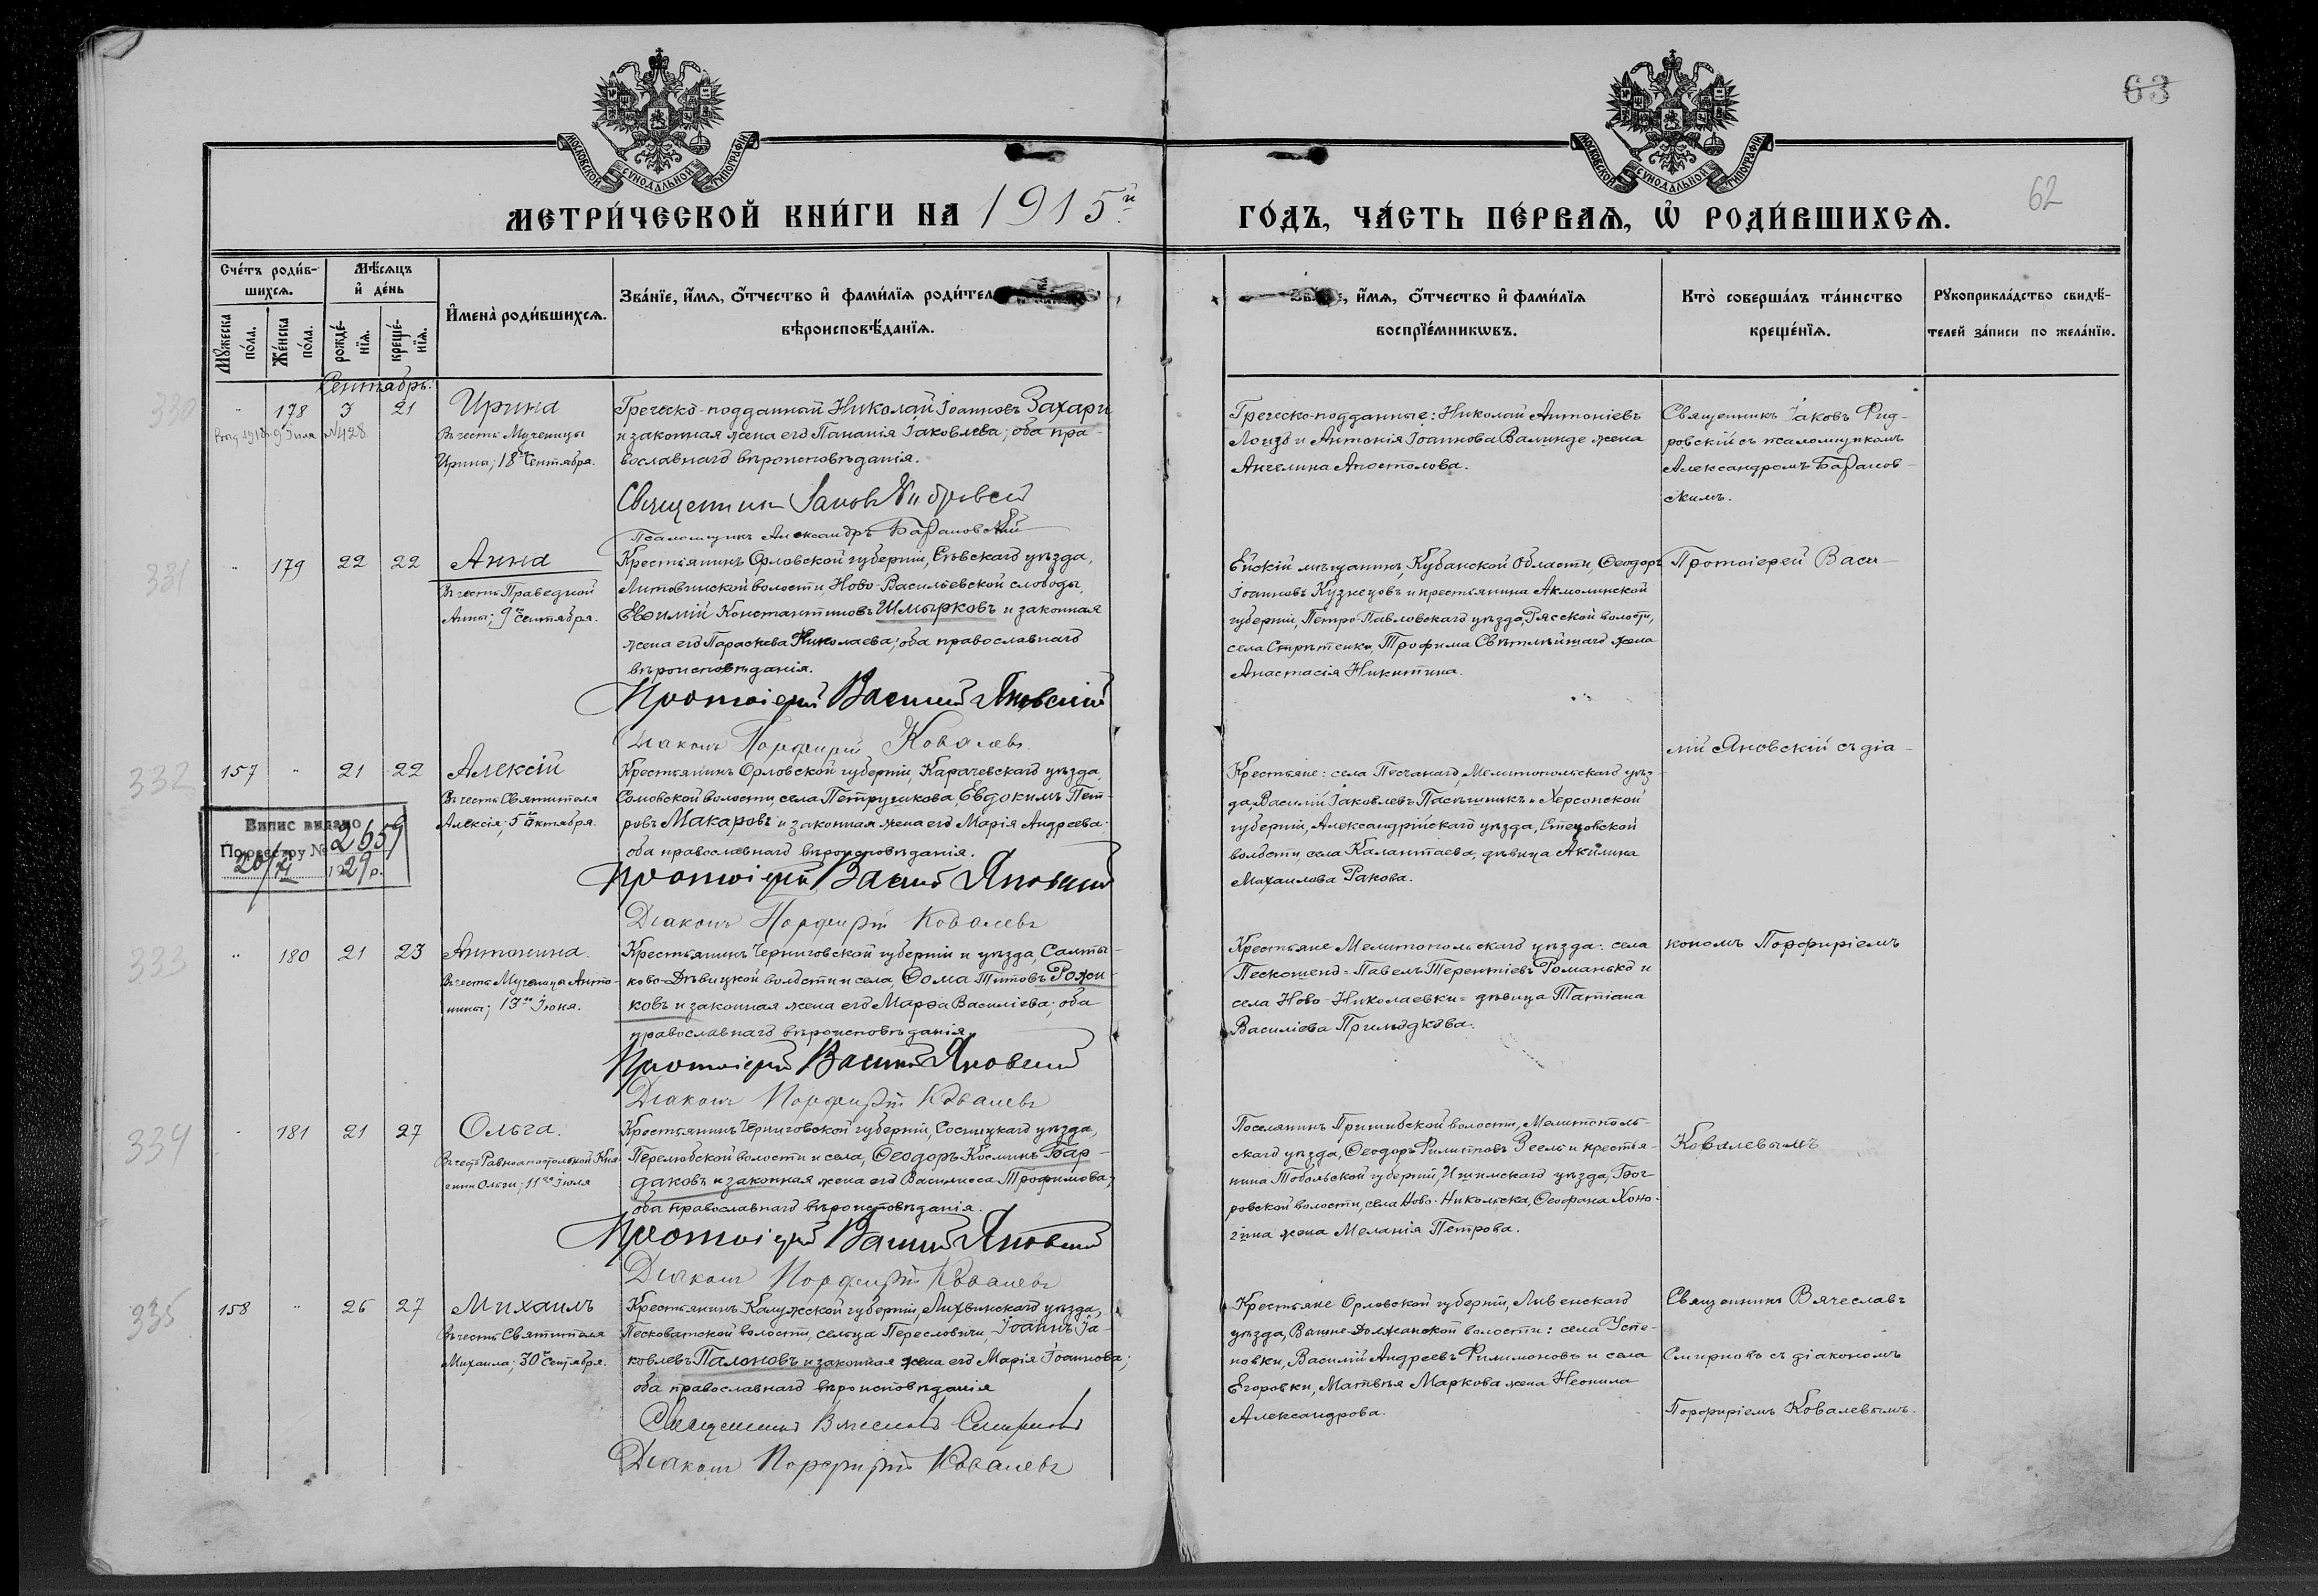 63
62
МОСКОВСКОЙ СѴНОДАЛЬНОЙ ТИПОГРАФІИ
МОСКОВСКОЙ СѴНОДАЛЬНОЙ ТИПОГРАФІИ
МЕТРИ́ЧЕСКОЙ КНИ́ГИ НА 1915й
ГО́ДЪ, ЧА́СТЬ ПЕ́РВАѦ, Ѡ҆ РОДИ́ВШИХСѦ.
Сче́тъ роди́в-
шихсѧ.
Мѣ́сѧцъ
и҆ де́нь
Мꙋ́жеска по́ла.
Же́нска по́ла.
рожде́-нїѧ.
креще́-нїѧ.
И҆мена̀ роди́вшихсѧ.
Зва́нїе, и҆́мѧ, ѻ҆́тчество и҆ фами́лїѧ роди́тел
вѣроисповѣ́данїѧ.
е, и҆́мѧ, ѻ҆́тчество и҆ фами́лїѧ
воспрїе́мникѡвъ.
Кто̀ соверша́лъ та́инство
креще́нїѧ.
Рꙋкоприкла́дство свидѣ́-
телей за́писи по жела́нїю.
Сентябрь.
330
" 178 3 21 Ирина
9 Іюля №428.
Въ честь Мученицы
Ирины; 18го Сентября.
Греческо-подданный Николай Іоанновъ Захари
и законная жена его Панаія Іаковлева; оба пра-
вославнаго вѣроисповѣданія.
Священникъ Іаковъ
Псаломщикъ Александръ Барановскій
Греческо-подданные: Николай Антоніевъ
и Антонія Іоаннова Валинде жена
Ангелина Апостолова.
Священникъ Іаковъ Фид-
ровскій съ псаломщикомъ
Александромъ Баранов-
скимъ.
331
" 179 22 22 Анна
Въ честь Праведной
Анны; 9го Сентября.
Крестьянинъ Орловской губерніи, Сѣвскаго уѣзда,
Литовнинской волости, Ново-Васильевской слободы,
Евѳимій Константиновъ Шмырковъ и законная
жена его Параскева Николаева; оба православнаго
вѣроисповѣданія.
Протоіерей Василій Яновскій
Діаконъ Порфирій Ковалевъ
Ейскій мѣщанинъ, Кубанской Области, Ѳеодоръ
Іоанновъ Кузнецовъ и крестьянина Акмолинской
губерніи, Петро-Павловскаго уѣзда, Рясской волости,
села Стрѣтенки, Трофима Свѣтлѣйшаго жена
Анастасія Никитина.
Протоіерей Васи-
332
157 " 21 22 Алексій
Въ честь Святителя
Алексія; 5го Октября.
Випис видано
По реєстру № 2659
20/VI 1929 р.
Крестьянинъ Орловской губерніи, Карачевскаго уѣзда,
Сомовской волости, села Петрушкова, Евдокимъ Пет-
ровъ Макаровъ и законная жена его Марія Андреева;
оба православнаго вѣроисповѣданія.
Протоіерей Василій Яновскій
Діаконъ Порфирій Ковалевъ
Крестьяне: села Песчанаго, Мелитопольскаго уѣз-
да, Василій Іаковлевъ Пасѣшникъ и Херсонской
губерніи, Александрійскаго уѣзда, Стецовской
волости, села Калантаева, дѣвица Акилина
Михаилова Ракова.
лій Яновскій съ діа-
333
" 180 21 23 Антонина.
Въ честь Мученицы Анто-
нины; 13го Іюня.
Крестьянинъ Черниговской губерніи и уѣзда, Салты-
ково-Дѣвицкой волости и села, Ѳома Титовъ Рожи-
ковъ и законная жена его Марѳа Василіева; оба
православнаго вѣроисповѣданія.
Протоіерей Василій Яновскій
Діаконъ Порфирій Ковалевъ
Крестьяне Мелитопольскаго уѣзда: села
Пескошено=Павелъ Терентіевъ Романько и
села Ново-Николаевки=дѣвица Татіана
Василіева Приходкова.
кономъ Порфиріемъ
334
" 181 21 27 Ольга.
Въ честь Равноапостольной Кня-
гини Ольги; 11го Іюля
Крестьянинъ Черниговской губерніи, Сосницкаго уѣзда,
Перелюбской волости и села, Ѳеодоръ Косминъ Бар-
даковъ и законная жена его Василисса Трофимова;
оба православнаго вѣроисповѣданія.
Протоіерей Василій Яновскій
Діаконъ Порфирій Ковалевъ
Поселянинъ Пришибской волости, Мелитополь-
скаго уѣзда, Ѳеодоръ Филиповъ Зеель и крестья-
нина Тобольской губерніи, Ишимскаго уѣзда,
ровской волости, села Ново-Никольска, Ѳеофана Хоно-
гина жена Меланія Петрова.
Ковалевымъ
335
158 " 26 27 Михаилъ
Въ честь Святителя
Михаила; 30го Сентября.
Крестьянинъ Калужской губерніи, Лихвинскаго уѣзда,
Песковатской волости, сельца Переслович, Іоаннъ Іа-
ковлевъ Палоновъ и законная жена его Марія Іоаннова;
оба православнаго вѣроисповѣданія
Священникъ Вячеславъ Смирновъ
Діаконъ Порфирій Ковалевъ
Крестьяне Орловской губерніи, Ливенскаго
уѣзда, Вышне-Должанской волости: села Успе-
новки, Василій Андреевъ Филимоновъ и села
Егоровки, Матвѣя Маркова жена Неонила
Александрова.
Священникъ Вячеславъ
Смирновъ съ діакономъ
Порфиріемъ Ковалевымъ.